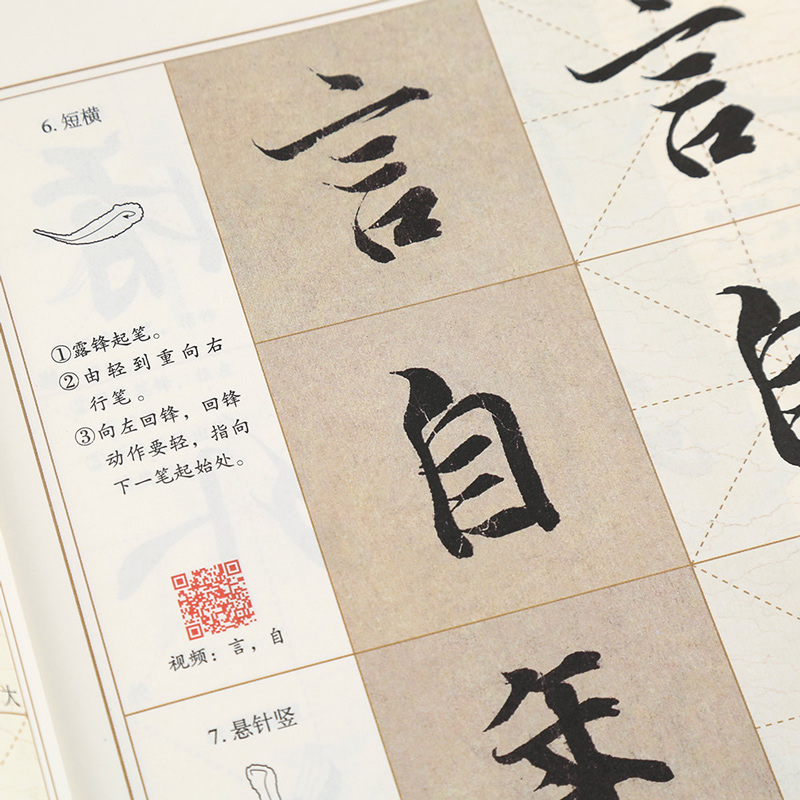 6. 短横
①露锋起笔。
②由轻到重向右
行笔。
③向左回锋，回锋
动作要轻，指向
下一笔起始处。
视频：言，自
7. 悬针竖
言
自
年
言
自
大